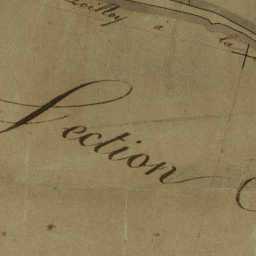 à la
Section